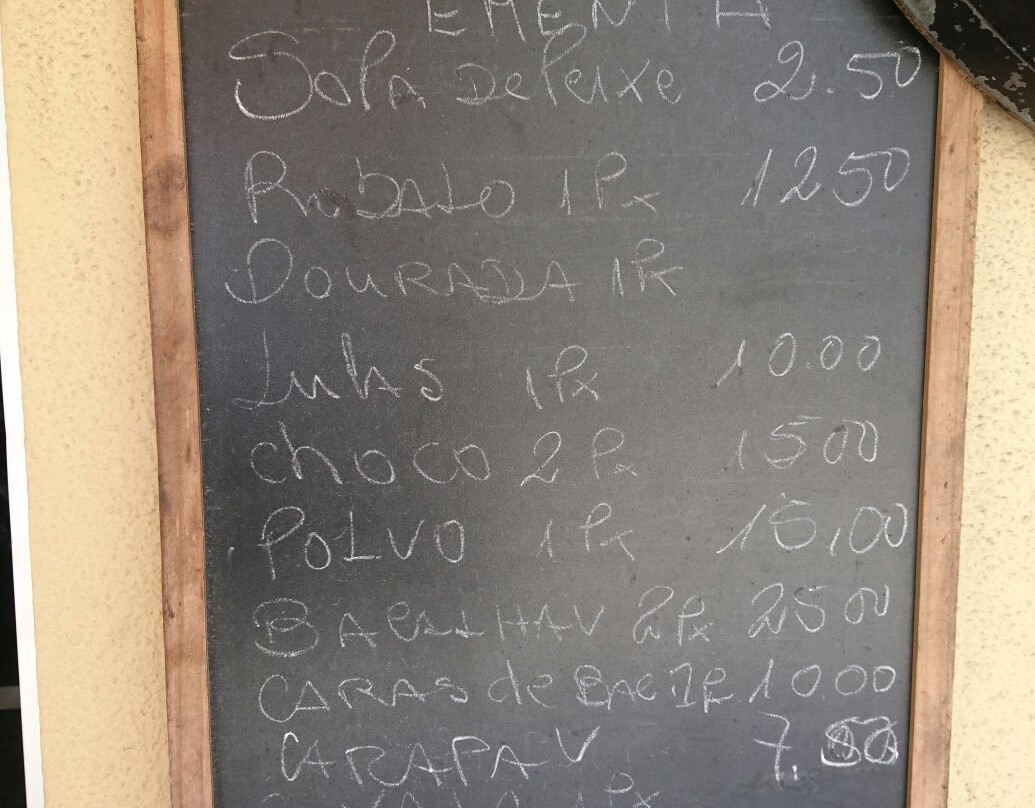 EMENTA
Sopa De Peixe 2.50
Robalo 1 Px 12 50
DOURADA 1 Px
Lulas 1 Px 10.00
choco 2 Px 15 00
POLVO 1 Px 15,00
BACALHAU 2 Px 25 00
CARAS de BAC 1P 10.00
CARAPAV 7.
1 Px